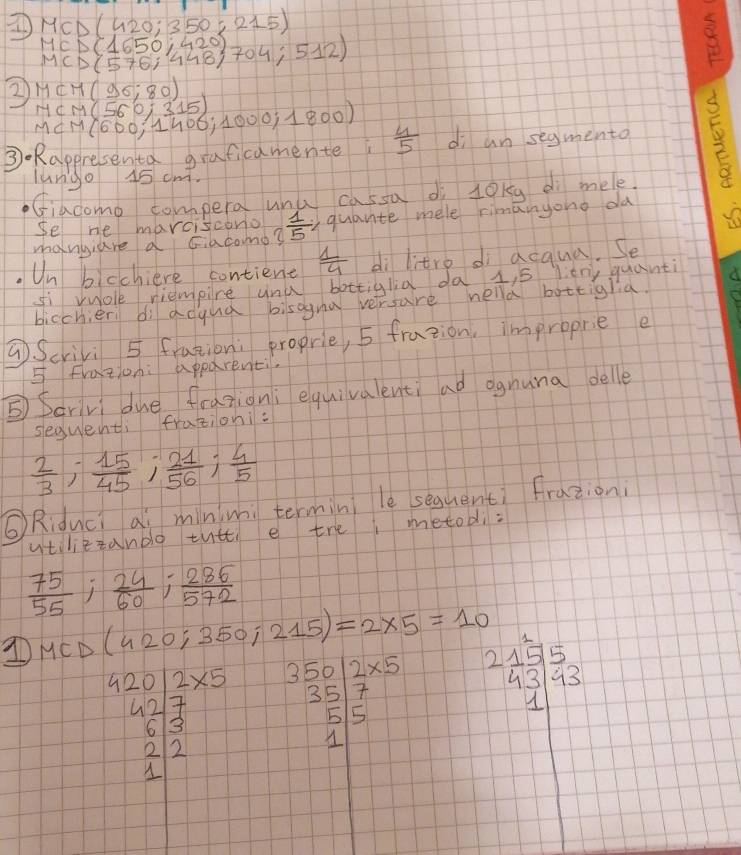 1) MCD (420; 350; 215)
MCD (1650; 420)
MCD (576; 448; 704; 512)
2) MCM (96; 80)
MCM (560; 315)
MCM (600; 1406; 1000; 1800)
3) • Rappresenta graficamente i 4/5 di un segmento
lungo 15 cm.
• Giacomo compera una cassa di 10kg di mele.
Se ne marciscono 1/5, quante mele rimangono da
mangiare a Giacomo?
• Un bicchiere contiene 1/4 di litro di acqua. Se
si vuole riempire una bottiglia da 1,5 litri, quanti
bicchieri di acqua bisogna versare nella bottiglia.
4) Scrivi 5 frazioni proprie, 5 frazioni improprie e
5 frazioni apparenti.
5) Scrivi due frazioni equivalenti ad ognuna delle
seguenti frazioni:
2/3 ; 15/45 ; 21/56 ; 4/5
6) Riduci ai minimi termini le seguenti frazioni
utilizzando tutti e tre i metodi:
75/55 ; 24/60 ; 286/572
1) MCD (420; 350; 215) = 2×5 = 10
420 | 2×5
42 | 7
6 | 3
2 | 2
1
350 | 2×5
35 | 7
5 | 5
1
1
215 | 5
43 | 43
1
TEORIA
ES. ARITMETICA